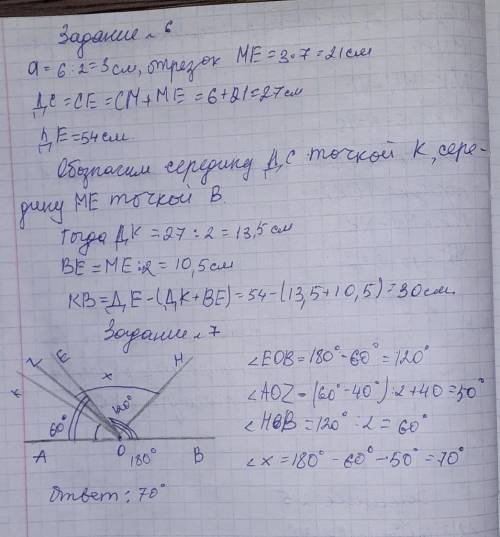 Задание №6
a = 6 : 2 = 3 см, отрезок ME = 3 · 7 = 21 см
ДС = СЕ = СМ + МЕ = 6 + 21 = 27 см
ДЕ = 54 см.
Обозначим середину ДС точкой К, сере-
дину МЕ точкой В.
Тогда ДК = 27 : 2 = 13,5 см
ВЕ = МЕ : 2 = 10,5 см
КВ = ДЕ - (ДК + ВЕ) = 54 - (13,5 + 10,5) = 30 см.
Задание №7
K Z E X H
60° 120°
A O 180° B
∠EOB = 180° - 60° = 120°
∠AOZ = (60° - 40°) : 2 + 40 = 50°
∠HOB = 120° : 2 = 60°
∠x = 180° - 60° - 50° = 70°
Ответ: 70°